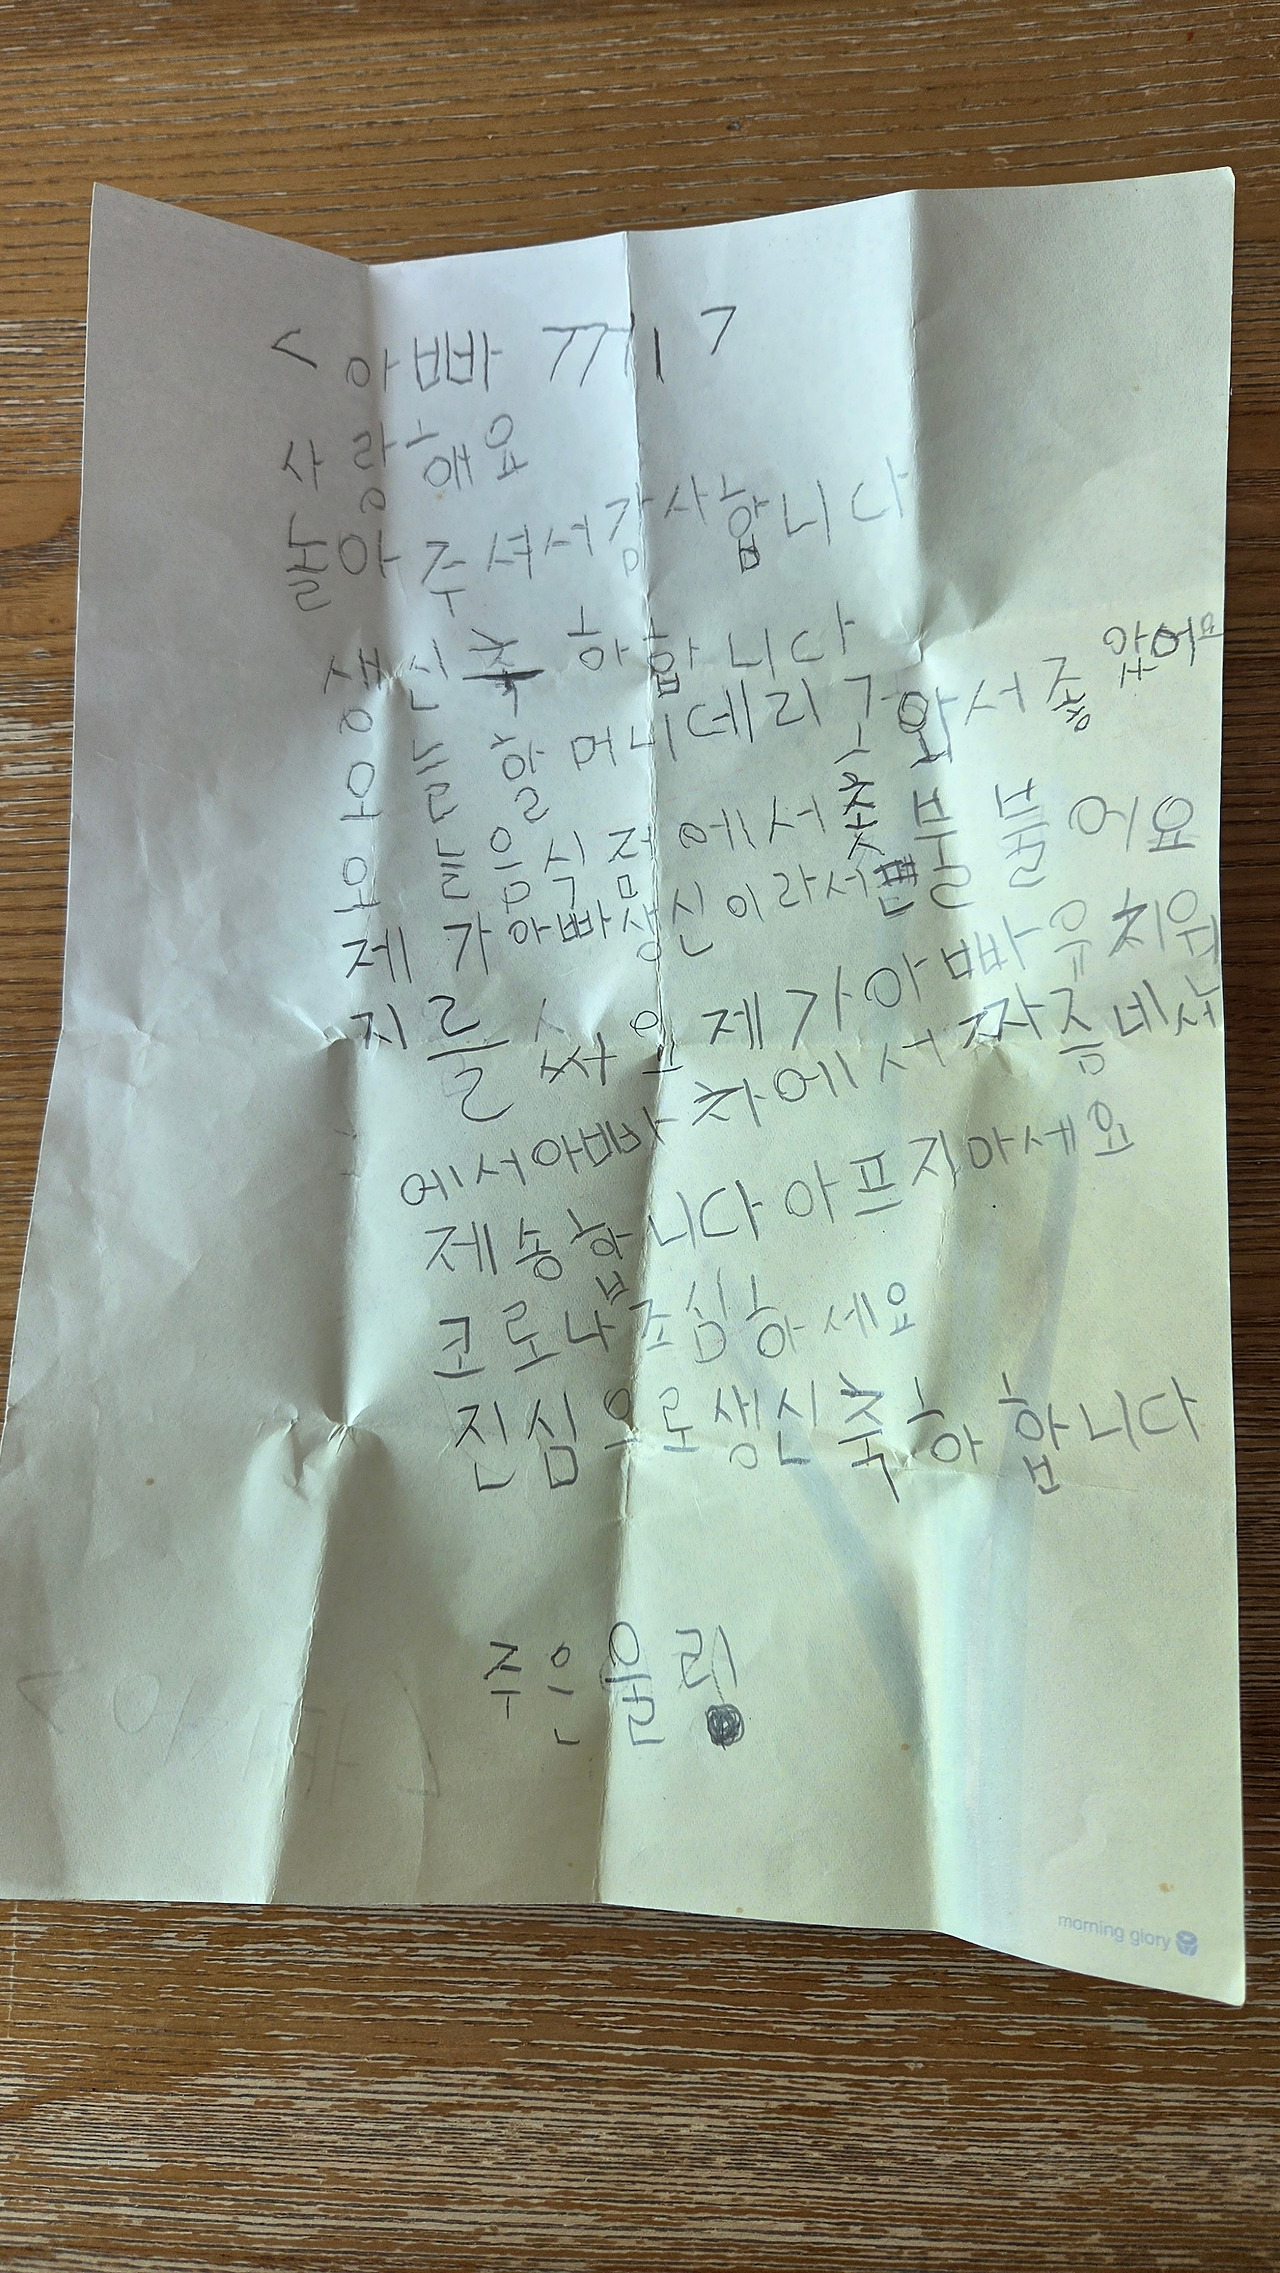 <아빠께>
사랑해요
놀아주셔서감사합니다
생신축하합니다
오늘할머니데리고와서좋았어요
오늘음식점에서촛불불어요
제가아빠생신이라서편
지를써요제가아빠유치원
에서아빠차에서짜증네서
제송합니다아프지마세요
코로나조심하세요
진심으로생신축하합니다
주은올림
morning glory